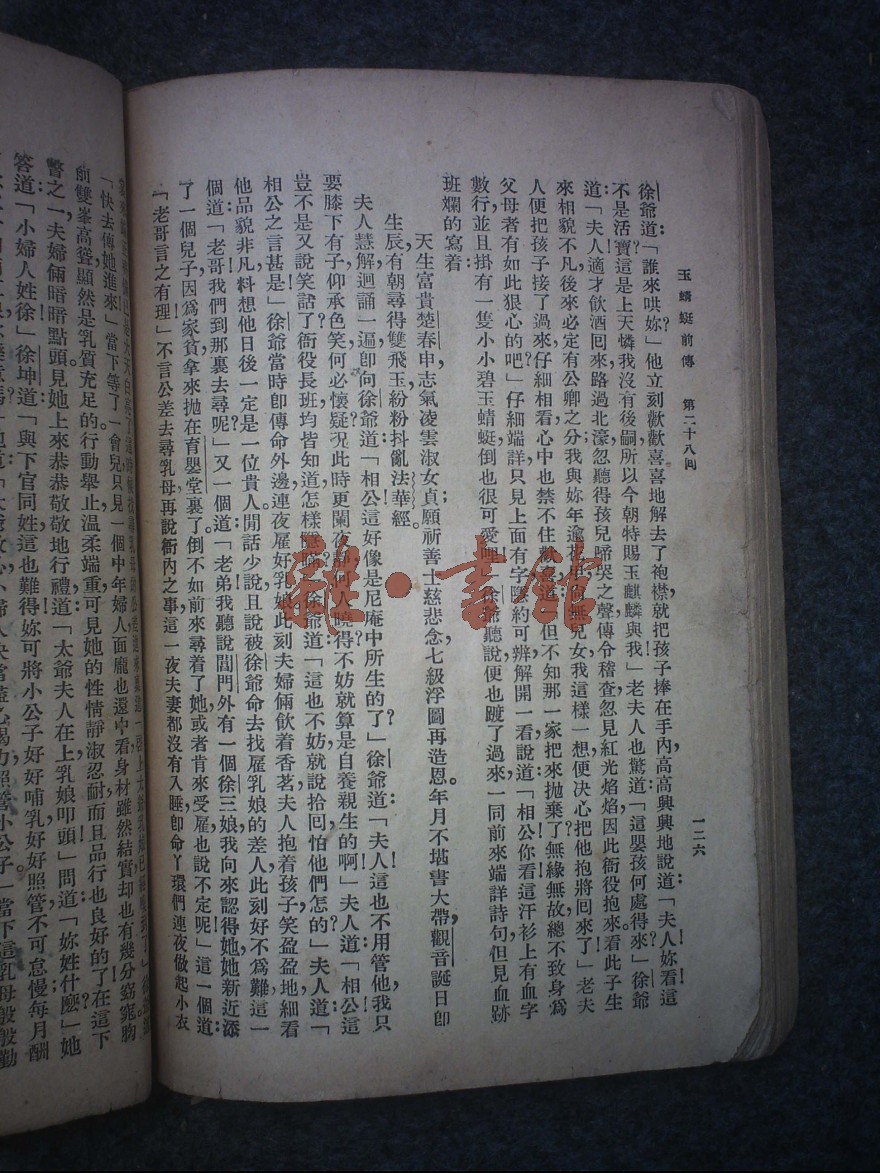 玉蜻蜓前傳 第二十八回 一二六
徐爺道：「誰來哄妳？」他立刻歡歡喜喜地解去了袍襟，就把孩子捧在手內，高高興興地說道：「夫人！妳看這
不是活寶！這是上天憐我沒有後嗣，所以今朝特賜玉麒麟與我」老夫人也驚道：「這嬰孩何處得來？」徐爺
道：「夫人！適才飲酒回來，路過北濠，忽聽得孩兒啼哭之聲，傳分稽查，忽見紅光焰焰，因此衙役抱來，看此子生
來相貌不凡，後來必定有公卿之分，我與妳年逾花甲，尚無兒女，我這樣一想，便決心把他抱將回來了」老夫
人便把孩子接了過來，仔細相看，心中也禁不住歡喜道：「但不知那一家把來拋棄了？無緣無故，總不致身爲
父母者有如此狠心的吧」仔細端詳，只見上面有字，隱約可辨，解開一看，說道：「相公！你看這汗衫上有血字
數行，並且掛有一隻小小碧玉蜻蜓，倒也很可愛哩！」徐爺聽說，便也踱了過來，一同前來端詳詩句，但見血跡
斑斕的寫着：
天生富貴楚春申，志氣凌雲淑女貞，願祈善士慈悲念，七級浮圖再造恩。年月不堪書大帶，觀音誕日即
生辰，有朝尋得雙飛玉，紛紛抖亂法華經。
夫人慧解，迴誦一遍，即向徐爺道：「相公！這好像是尼庵中所生的了？」徐爺道：「夫人！這也不用管他，我只
要膝下有子，仰承色笑，何必懷疑？況此時更闌夜靜，何人曉得？不妨就算是自養親生的啊！」夫人道：「相公！這
豈不是又說笑話了？衙役長班，均皆知道，怎樣瞞啼？」徐爺道：「這也不妨，就說拾回，怕他們怎的」夫人道：「
相公之言甚是」徐爺當時即傳命外邊，連夜雇好乳娘，此刻夫婦倆飲着香茗，夫人抱着孩子，笑盈盈地細看
他品貌非凡，料想他日後一定是一位貴人。閒話少說，且說被徐爺命去找雇乳娘的差人，此刻好不爲難，這一
個道：「老哥！我們到那裏去尋呢？」又一個道：「老弟！我聽說閶門外有一個徐三娘，我向來認得她，她新近添
了一個兒子，因爲家貧，拿來拋在育嬰堂裏了。倒不如前來尋着了她，或者肯來受雇也說不定呢」這一個道：
「老哥言之有理」不言公差去尋乳母，再說衙內之事，這一夜夫妻都沒有入睡，即命丫環們連夜做起小衣
「快去傳她進來！」當下等了一會兒，只見一個中年婦人，面龐也還中看，身材雖然結實，却也有幾分窈窕，胸
前雙峯高聳，顯然是乳質充足的，行動舉止，温柔端重，可見她的性情靜淑忍耐，而且品行也良好的了，在這下
瞥之一，夫婦倆暗暗點頭，見她上來恭恭敬敬地行禮道：「太爺夫人在上，乳娘叩頭」問道：「妳姓什麼？」她
答道：「小婦人姓徐」徐坤道：「與下官同姓，這也難得，妳可將小公子好好哺乳，好好照管，不可怠慢，每月酬